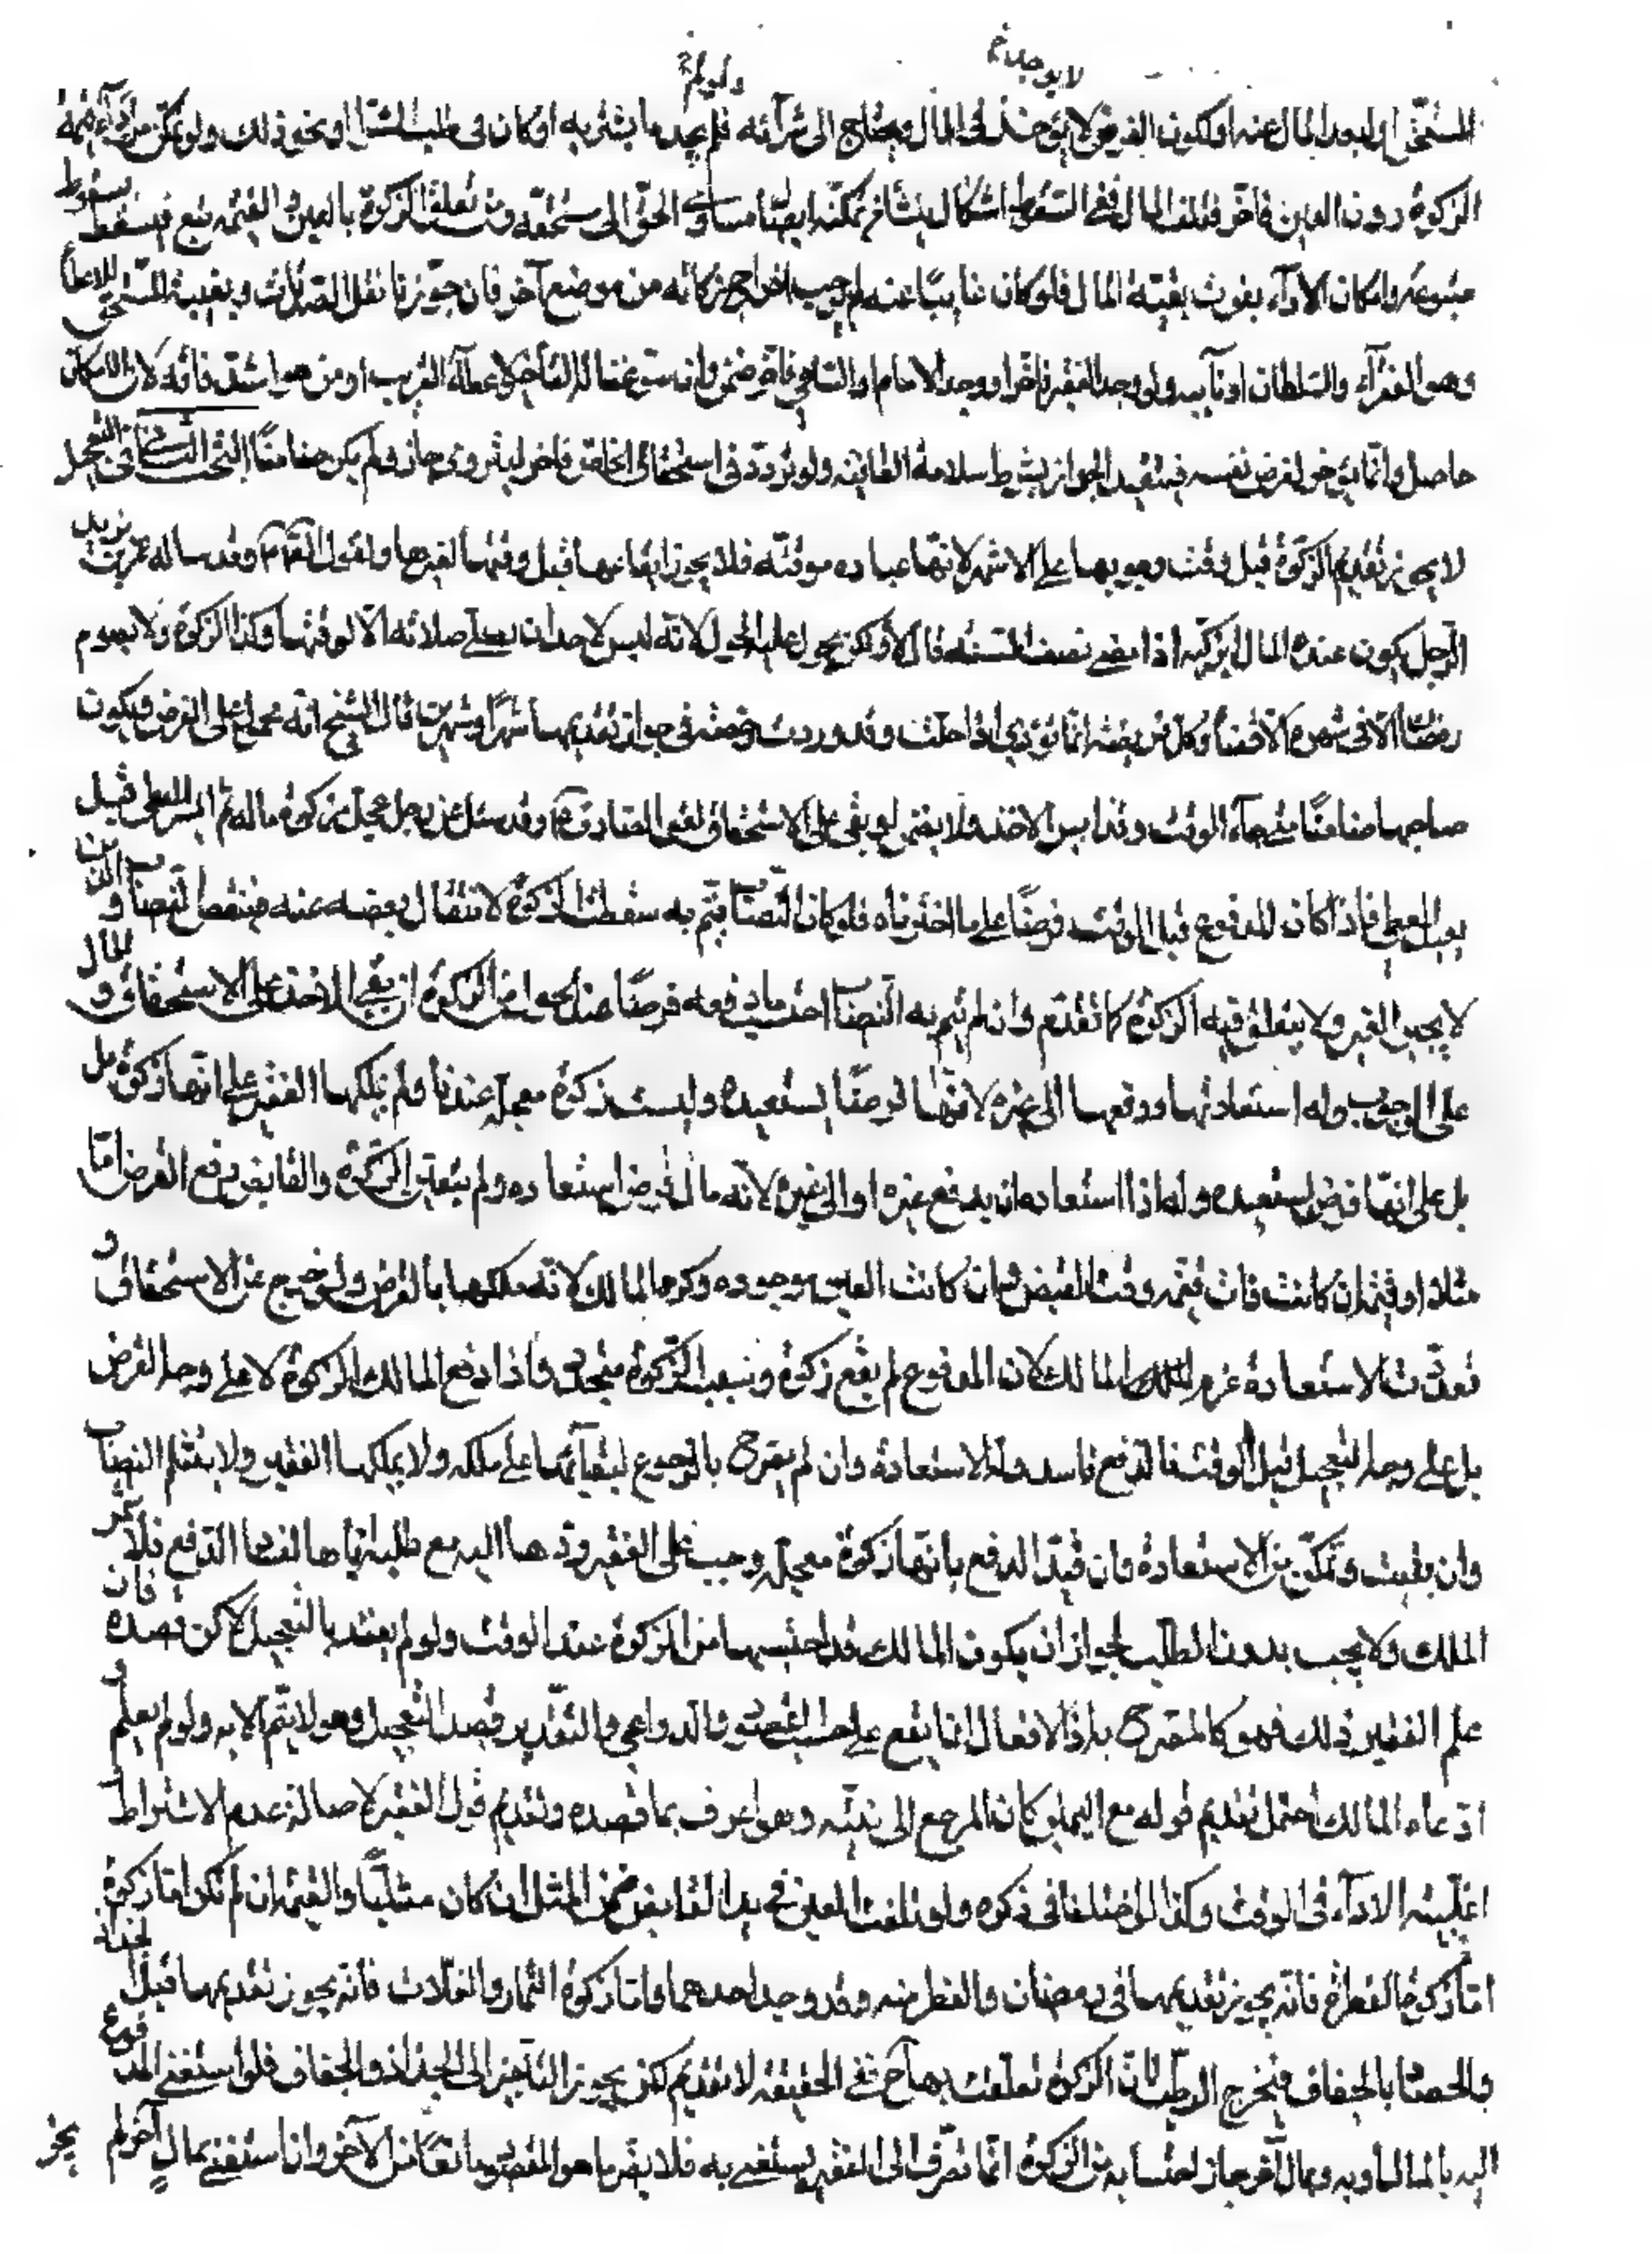 لا يوجد
المستحق او لبعد المال عنه او لكون الفرض لا يوجد في المال ويحتاج الى شرائه فلم يجد ما يشتريه او كان في طلب الشراء او نحو ذلك ولو تمكن من اداء قيمة
الزكوة دون العين فاخر فتلف المال ففي السقوط اشكال ينشأ من تمكنه ايصال مساوي الحق الى مستحقه ومن تعلق الزكوة بالعين والقيمة تبع فيسقط بسقوط
متبوعه وامكان الاداء يفوت بغيبة المال فلو كان غايبا عنه لم يجب اخراج زكاته من موضع آخر فان جوزنا نقل الصدقات وبغيبة المستحق
وهو الفقراء والسلطان او نايبه ولو وجد الفقير فاخر او وجد الامام او الساعي فاخر ضمن وانه سوغنا له التأخير لاعطاء القريب او من هو اشد فاقة لان الامكان
حاصل وانما يؤخر لغرض نفسه فيتقيد الجواز بشرط سلامة العاقبة ولو تردد في استحقاق الحاضر فاخر ليتروى جاز ولم يكن ضامنا البحث الثاني في التعجيل
لا يجوز تقديم الزكوة قبل وقت وجوبها على الاشهر لانها عبادة موقتة فلا يجوز ايقاعها قبل وقتها لغيرها ولقول الصادق ع وقد ساله عمر بن يزيد
الرجل يكون عنده المال ايزكيه اذا مضى نصف السنة قال لا ولكن يحول عليه الحول لانه ليس لاحد ان يصلي صلاته الا لوقتها وكذا الزكوة ولا يصوم
رمضان الا في شهره الا قضاء وكل فريضة انما تؤدي اذا حلت وقد وردت رخصة في جواز تقديمها شهرا وشهرين قال الشيخ انه محمول على القرض فيكون
صاحبها ضامنا متى جاء الوقت وقد ايسر الاخذ ولا يضمن لو بقي على الاستحقاق لقول الصادق ع وقد سئل عن رجل عجل زكوة ماله ثم ايسر المعطى قبل
فاذا كان المدفوع قبل الوقت قرضا على ما اخترناه فلو كان النصاب يتم به سقطت الزكوة لانتقال بعضه عنه فينقص النصاب والدين
لا يجبر الفقير ولا يتعلق فيه الزكوة كما تقدم وان لم يتم به النصاب احتسب ما دفعه قرضا عند الحول من الزكوة ان بقي الاخذ على الاستحقاق والمال
على الوجوب وله استعادتها ودفعها الى غيره لانها قرضا يستعيده وليست زكوة معجلة عندنا ولم يملكها الفقير على انها زكوة بل
بل على انها قرض يستعيده وله اذا استعاده ان يدفع غيره او الى غيره لانه مال قرض استعاده ولم يتعلق الزكوة والقابض يدفع القرض اما
مثلا او قيمة ان كانت فات قيمة وقت القبض وان كانت العين موجودة وكره المالك لانه ملكها بالقرض ولو خرج عن الاستحقاق و
تعذرت الاستعادة غرم المالك لان المدفوع لم يقع زكوة وسبب الزكوة متجدد واذا دفع المالك الزكوة لا على وجه القرض
بل على وجه التعجيل قبل الوقت فالدفع فاسد وله الاستعادة وان لم يصرح بالرجوع لبقائها على ملكه ولا يملكها الفقير ولا يثلم النصاب
وان بقيت وتمكن من الاستعادة وان قيد الدفع بانها زكوة معجلة وجب على الفقير ردها اليه مع طلبه اياها لفساد الدفع فلا يثمر
الملك ولا يجب بدون الطلب لجواز ان يكون المالك قد احتسبها من الزكوة عند الوقت ولو لم يقيد بالتعجيل لكن قصده فان
علم الفقير ذلك فهو كالمصرح به اذ الافعال انما يقع على حسب القصود والدواعي والتقدير قصد التعجيل وهو لا يتم الا به ولو لم يعلم و
ادعاه المالك احتمل تقديم قوله مع اليمين لان المرجع الى نيته وهو اعرف بما قصده وتقديم قول الفقير لاصالة عدم الاشتراط و
اغلبية الاداء في الوقت وكذا لو اختلفا في ذكره ولو تلفت العين في يد القابض ضمن المثل ان كان مثليا والقيمة ان لم تكن اما زكوة
اما زكوة الفطرة فانه يجوز تقديمها في رمضان والفطر منه وقد وجد احدهما واما زكوة الثمار والغلات فانه يجوز تقديمها قبل الجذاذ
والحصاد بالجفاف فيخرج الرطب لان الزكوة تعلقت بها ح ففي الحقيقة لا تقديم لكن يجوز التأخير الى الجذاذ والجفاف فلو استغنى المدفوع
اليه بالمال او به وبمال آخر جاز احتسابه من الزكوة انما تصرف الى الفقير ليستغني به فلا يصير ما هو المقصود مانعا من الآخر وان استغنى بمال آخر لم يجز